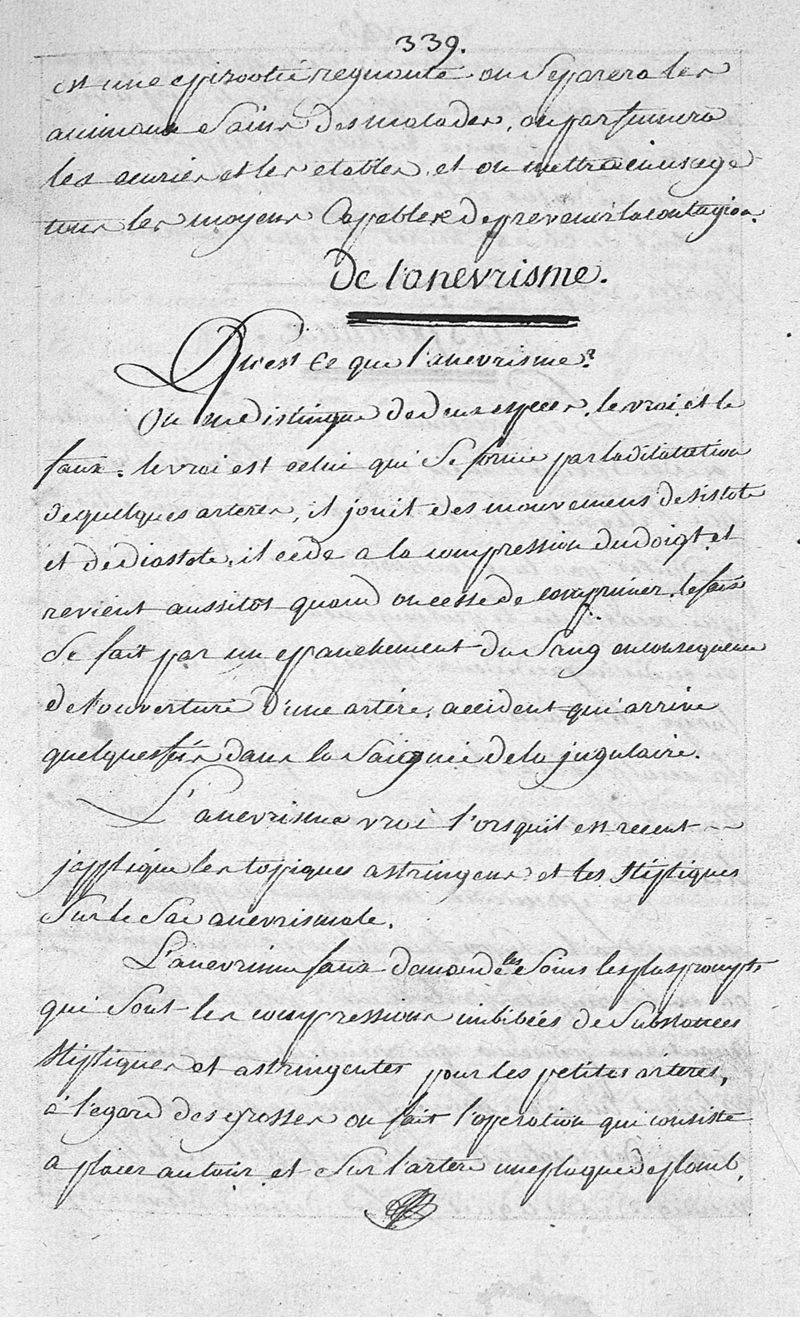 339.
est une epizootie regnante on Separera les
animaux Sains des malades, on parfumera
les ecuries et les etables, et on mettra en usage
tous les moyens Capables de prevenir la contagion.
De l'anevrisme.
Qu'est Ce que l'anevrisme?
On en distingue de deux especes, le vrai et le
faux. le vrai est celui qui Se forme par la dilatation
de quelques arteres, il jouit des mouvemens de sistole
et de diastole, il cede a la compression du doigt, et
revient aussitôt quand on cesse de comprimer. le faux
Se fait par un epanchement du Sang en consequence
de l'ouverture d'une artère, accident qui arrive
quelques fois dans la Saignée de la jugulaire.
L'anevrisme vrai l'orsquil est recent
j'applique les topiques astringens et les stiptiques
Sur le Sac anevrismale.
L'anevrisme faux demande les Soins les plus prompts
qui Sont les compressions imbibées de Substances
stiptiques et astringentes pour les petites artères,
à l'egard des grosses on fait l'operation qui consiste
a placer autour et Sur l'artere une plaque de plomb,